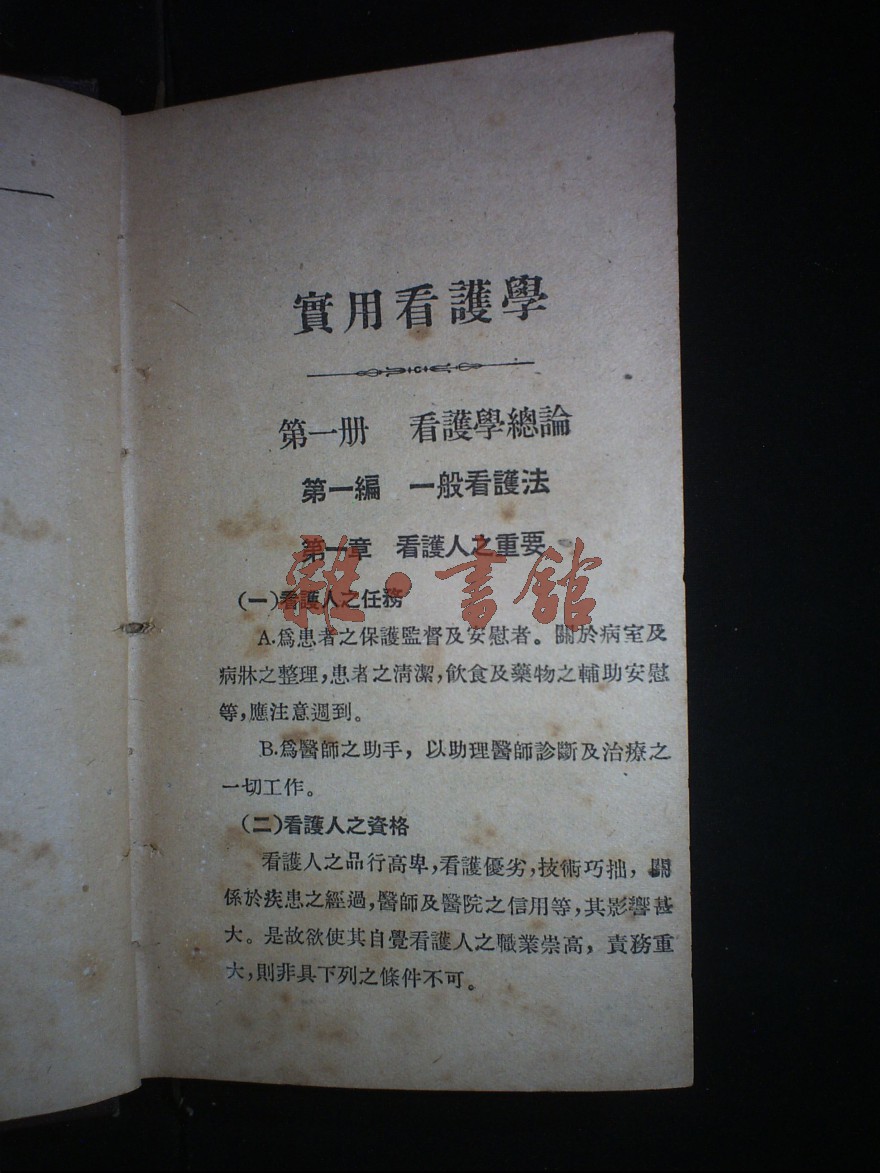 實用看護學
第一册 看護學總論
第一編 一般看護法
第一章 看護人之重要
雜·書館
(一)看護人之任務
A.爲患者之保護監督及安慰者。關於病室及
病牀之整理,患者之淸潔,飮食及藥物之輔助安慰
等,應注意週到。
B.爲醫師之助手,以助理醫師診斷及治療之
一切工作。
(二)看護人之資格
看護人之品行高卑,看護優劣,技術巧拙,關
係於疾患之經過,醫師及醫院之信用等,其影響甚
大。是故欲使其自覺看護人之職業崇高,責務重
大,則非具下列之條件不可。